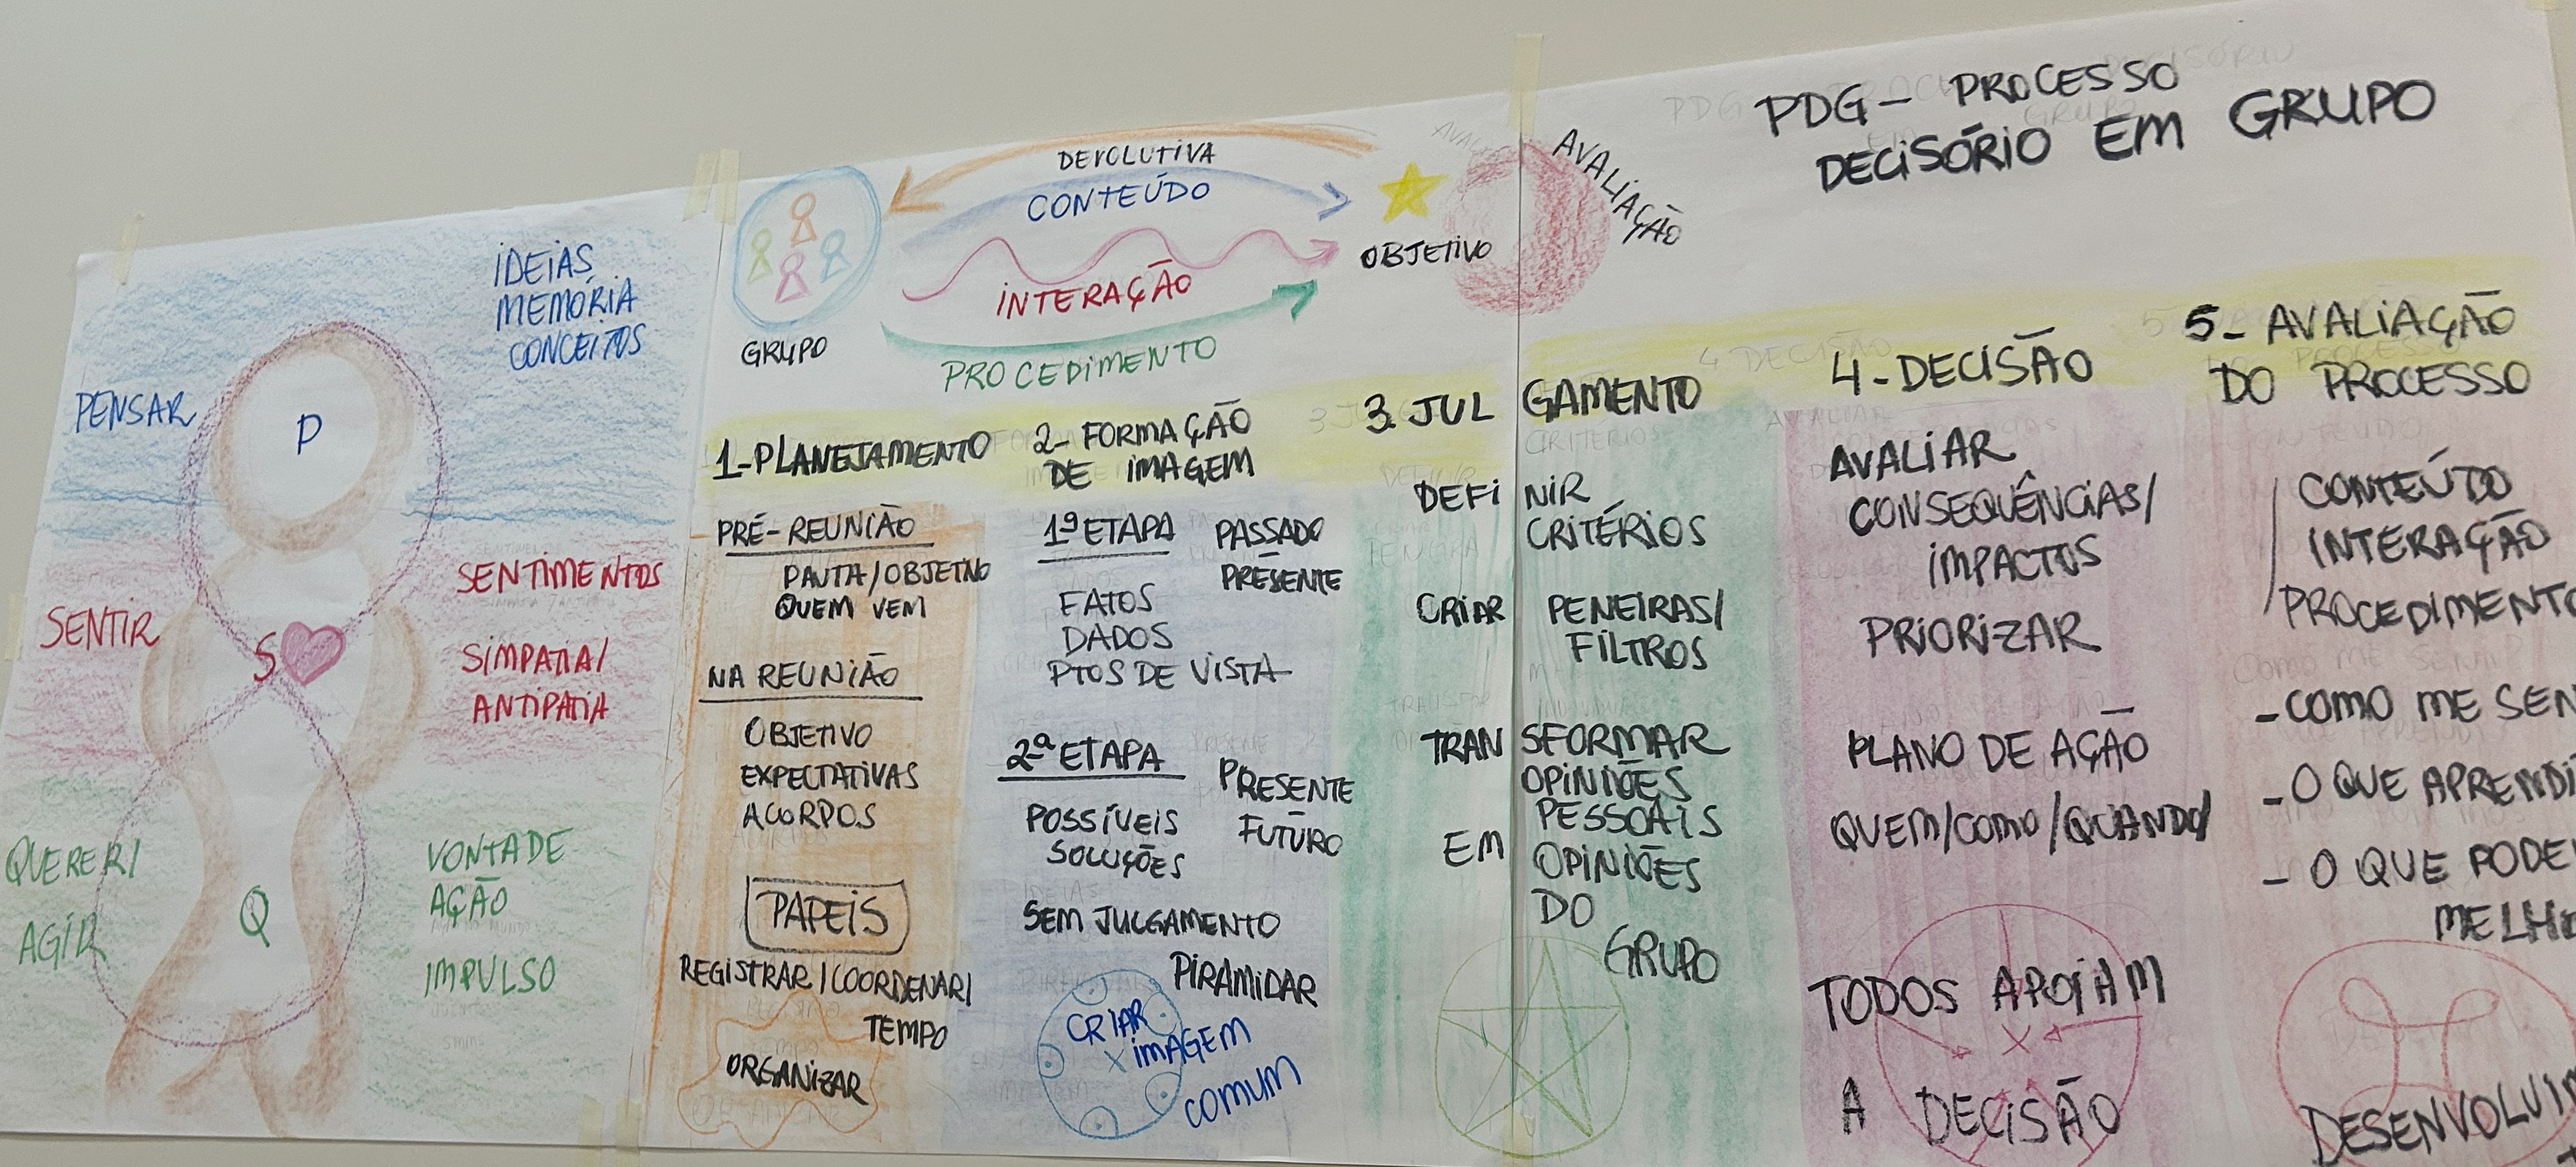 PDG - PROCESSO
DECISÓRIO EM GRUPO
IDEIAS
MEMÓRIA
CONCEITOS
PENSAR
P
SENTIMENTOS
SENTIR
S
SIMPATIA/
ANTIPATIA
QUERER/
AGIR
Q
VONTADE
AÇÃO
IMPULSO
GRUPO
DEVOLUTIVA
CONTEÚDO
INTERAÇÃO
PROCEDIMENTO
OBJETIVO
AVALIAÇÃO
1-PLANEJAMENTO
PRÉ-REUNIÃO
PAUTA/OBJETIVO
QUEM VEM
NA REUNIÃO
OBJETIVO
EXPECTATIVAS
ACORDOS
PAPEIS
REGISTRAR/COORDENAR/
TEMPO
ORGANIZAR
2- FORMAÇÃO
DE IMAGEM
1ª ETAPA PASSADO
PRESENTE
FATOS
DADOS
PTOS DE VISTA
2ª ETAPA PRESENTE
FUTURO
POSSÍVEIS
SOLUÇÕES
SEM JULGAMENTO
PIRAMIDAR
CRIAR
IMAGEM
COMUM
3. JULGAMENTO
DEFINIR
CRITÉRIOS
CRIAR PENEIRAS/
FILTROS
TRANSFORMAR
OPINIÕES
PESSOAIS
EM OPINIÕES
DO
GRUPO
4-DECISÃO
AVALIAR
CONSEQUÊNCIAS/
IMPACTOS
PRIORIZAR
PLANO DE AÇÃO
QUEM/COMO/QUANDO/
TODOS APOIAM
A DECISÃO
5- AVALIAÇÃO
DO PROCESSO
CONTEÚDO
INTERAÇÃO
PROCEDIMENTO
- COMO ME SEN
- O QUE APRENDI
- O QUE PODE
MELHO
DESENVOLVIM